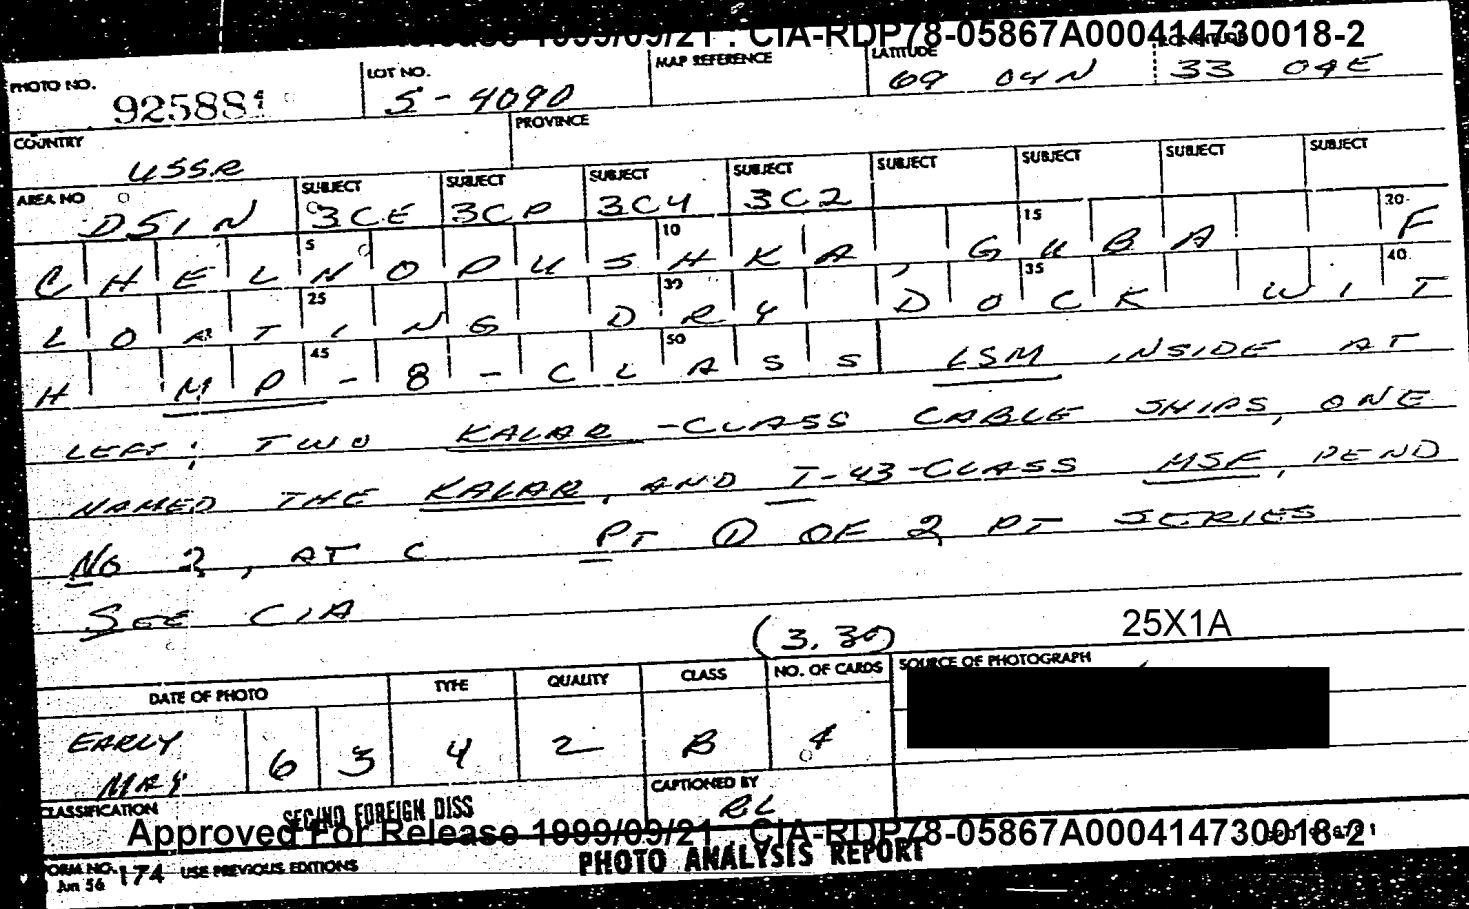 Release 1999/09/21 : CIA-RDP78-05867A000414730018-2
PHOTO NO. 925881 LOT NO. S-4090 MAP REFERENCE LATITUDE 69 04N LONGITUDE 33 04E
COUNTRY USSR PROVINCE
AREA NO DSIN SUBJECT 3CE SUBJECT 3CP SUBJECT 3C4 SUBJECT 3C2 SUBJECT SUBJECT SUBJECT SUBJECT
5 10 15 20
CHELNOPUSHKA, GUBA F
25 30 35 40
LOATING DRY DOCK WIT
45 50
H MP-8-CLASS LSM INSIDE AT
LEFT; TWO KALAR-CLASS CABLE SHIPS, ONE
NAMED THE KALAR, AND T-43-CLASS MSF, PEND
NO 2, AT C PT ① OF 2 PT SERIES
SEE CIA
(3.30) 25X1A
DATE OF PHOTO TYPE QUALITY CLASS NO. OF CARDS SOURCE OF PHOTOGRAPH
EARLY MAY 6 3 4 2 B 4
CAPTIONED BY RL
CLASSIFICATION FOREIGN DISS
Approved For Release 1999/09/21 : CIA-RDP78-05867A000414730018-2
FORM NO. 174 USE PREVIOUS EDITIONS PHOTO ANALYSIS REPORT
Jun 56